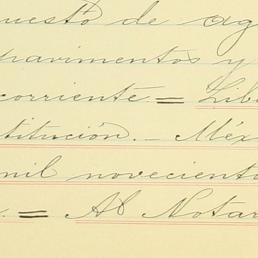 uesto de ag
pavimentos y
corriente = Lib
titución. - Méx
mil novecient
. = Al Notar